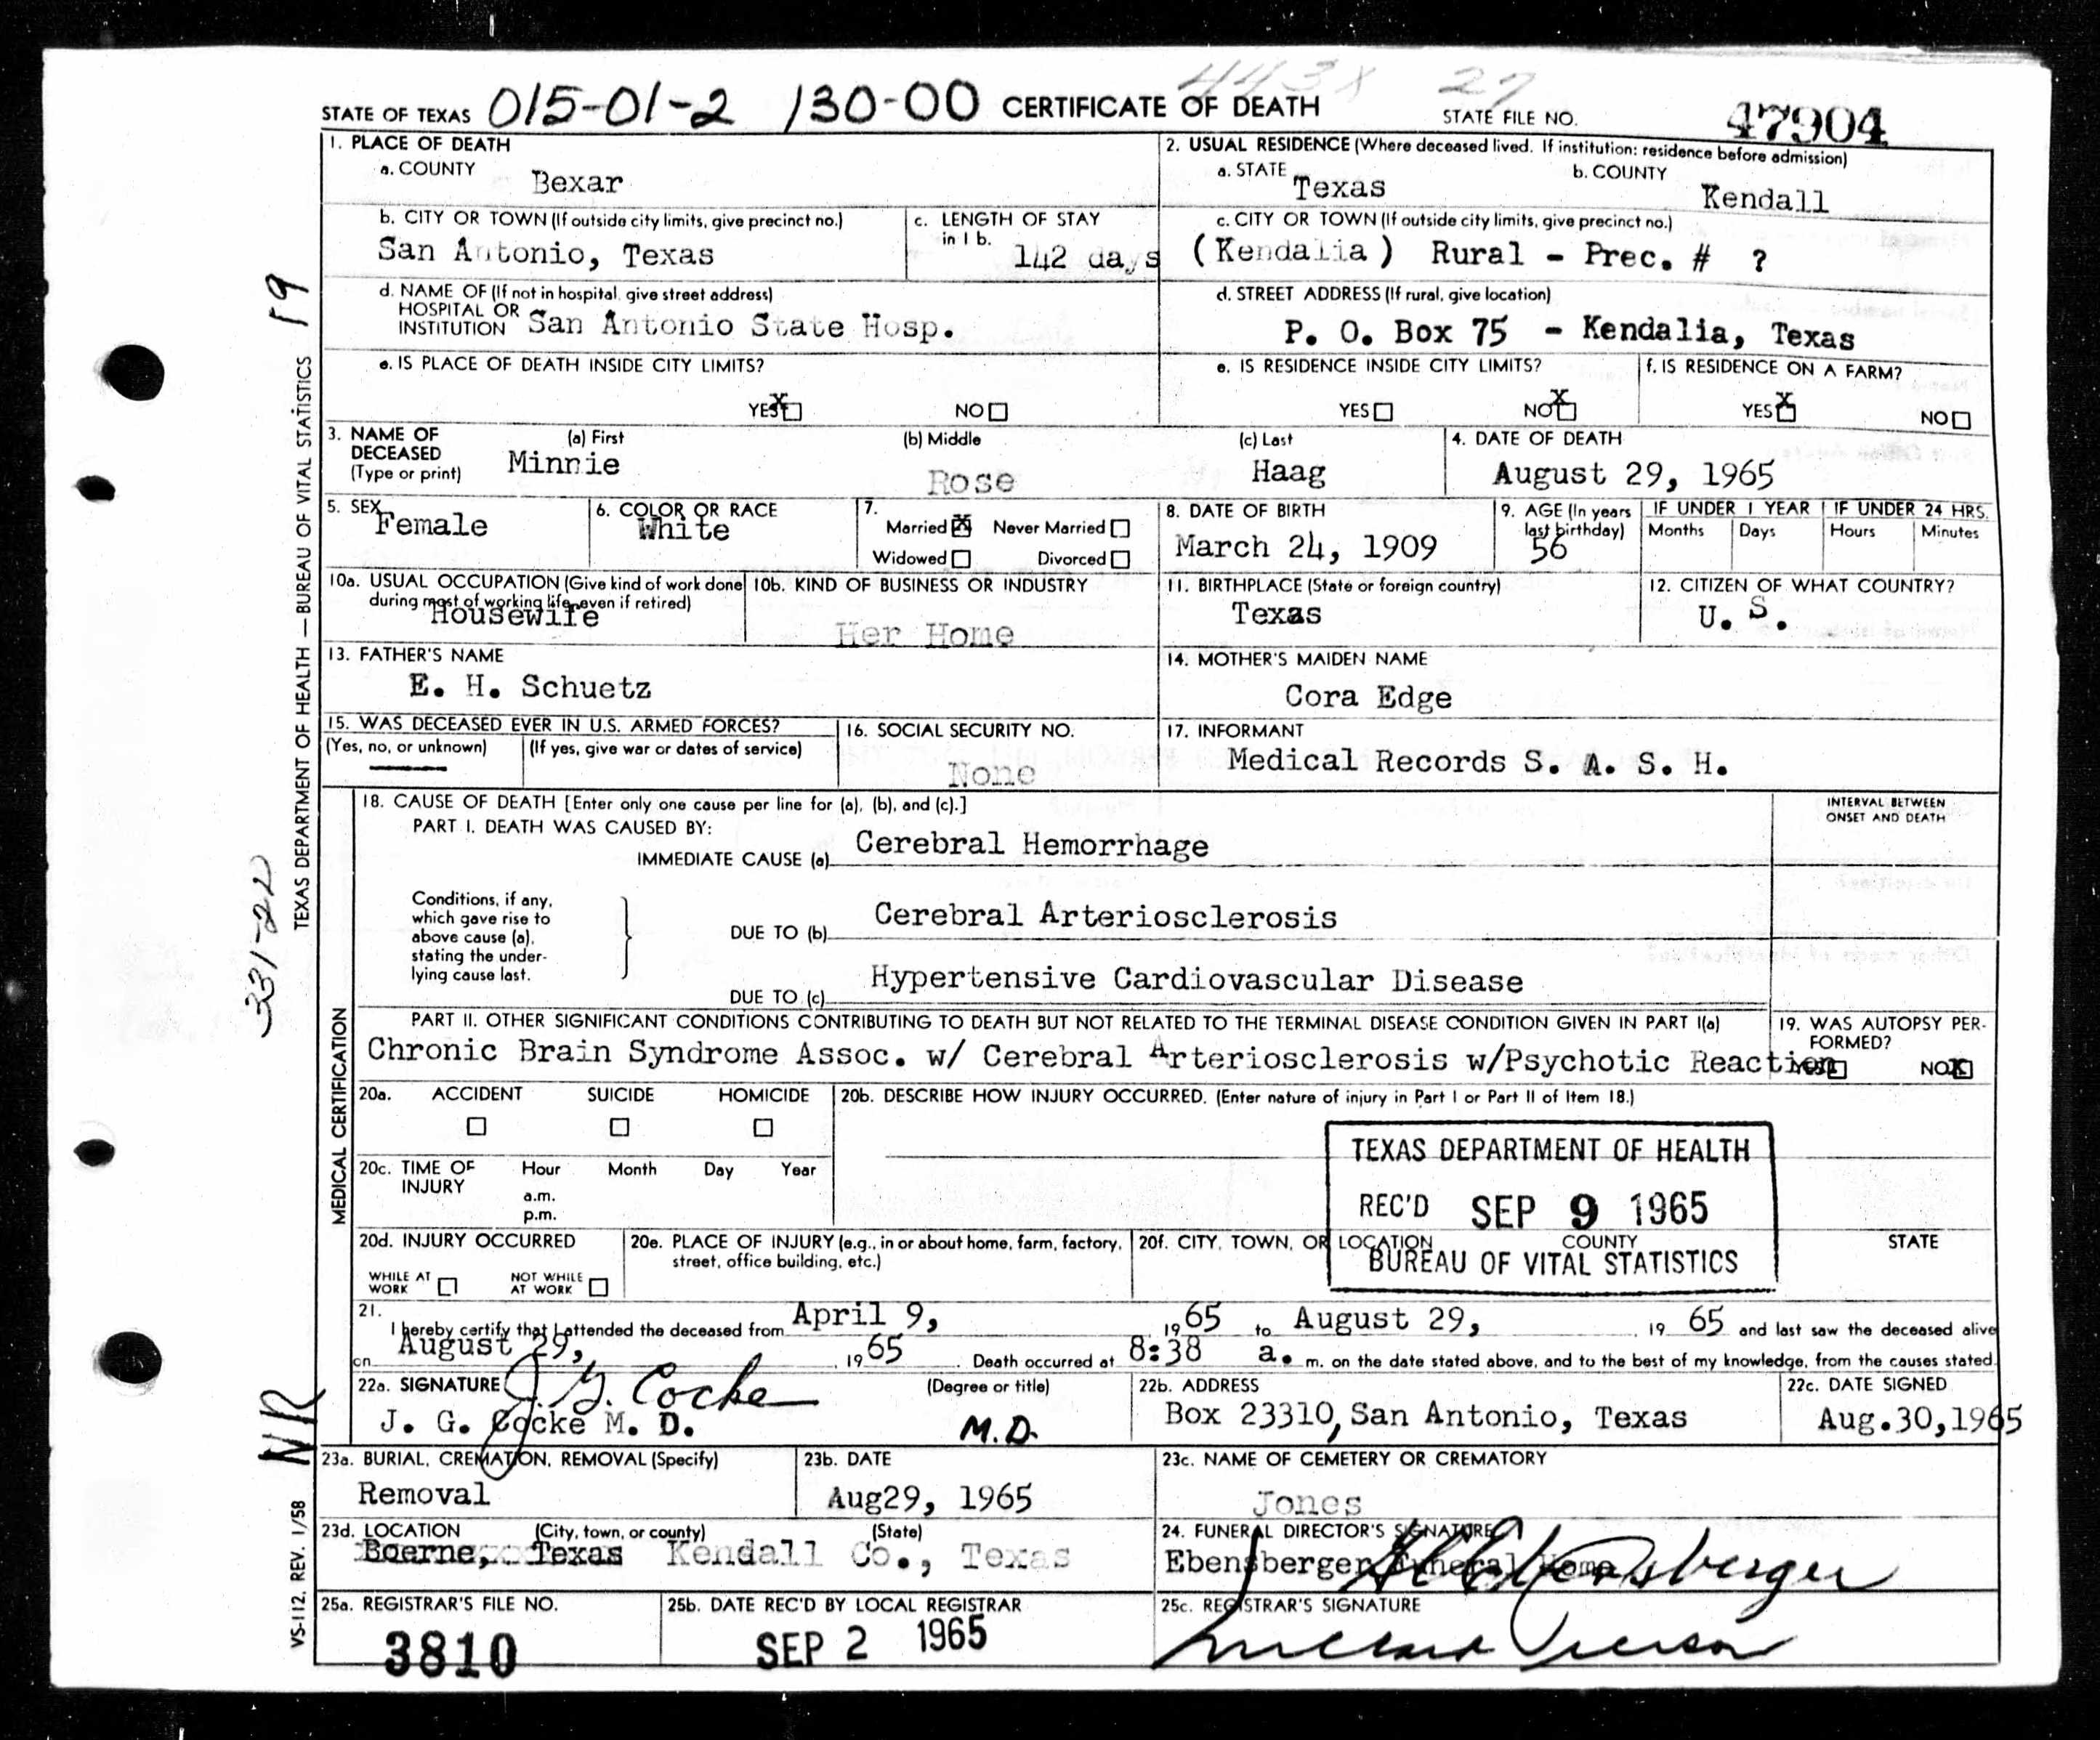 443X 27
STATE OF TEXAS 015-01-2 130-00 CERTIFICATE OF DEATH STATE FILE NO. 47904
1. PLACE OF DEATH
a. COUNTY Bexar
2. USUAL RESIDENCE (Where deceased lived. If institution: residence before admission)
a. STATE Texas b. COUNTY Kendall
b. CITY OR TOWN (If outside city limits, give precinct no.)
San Antonio, Texas
c. LENGTH OF STAY
in 1 b. 142 days
c. CITY OR TOWN (If outside city limits, give precinct no.)
(Kendalia) Rural - Prec. # ?
d. NAME OF (If not in hospital, give street address)
HOSPITAL OR
INSTITUTION San Antonio State Hosp.
d. STREET ADDRESS (If rural, give location)
P. O. Box 75 - Kendalia, Texas
e. IS PLACE OF DEATH INSIDE CITY LIMITS?
YES X NO
e. IS RESIDENCE INSIDE CITY LIMITS?
YES NO X
f. IS RESIDENCE ON A FARM?
YES X NO
3. NAME OF
DECEASED
(Type or print)
(a) First
Minnie
(b) Middle
Rose
(c) Last
Haag
4. DATE OF DEATH
August 29, 1965
5. SEX
Female
6. COLOR OR RACE
White
7.
Married X Never Married
Widowed Divorced
8. DATE OF BIRTH
March 24, 1909
9. AGE (In years
last birthday)
56
IF UNDER 1 YEAR
Months Days
IF UNDER 24 HRS.
Hours Minutes
10a. USUAL OCCUPATION (Give kind of work done
during most of working life, even if retired)
Housewife
10b. KIND OF BUSINESS OR INDUSTRY
Her Home
11. BIRTHPLACE (State or foreign country)
Texas
12. CITIZEN OF WHAT COUNTRY?
U. S.
13. FATHER'S NAME
E. H. Schuetz
14. MOTHER'S MAIDEN NAME
Cora Edge
15. WAS DECEASED EVER IN U.S. ARMED FORCES?
(Yes, no, or unknown) (If yes, give war or dates of service)
16. SOCIAL SECURITY NO.
None
17. INFORMANT
Medical Records S. A. S. H.
18. CAUSE OF DEATH [Enter only one cause per line for (a), (b), and (c).]
PART I. DEATH WAS CAUSED BY:
IMMEDIATE CAUSE (a) Cerebral Hemorrhage
INTERVAL BETWEEN
ONSET AND DEATH
Conditions, if any,
which gave rise to
above cause (a),
stating the under-
lying cause last.
DUE TO (b) Cerebral Arteriosclerosis
DUE TO (c) Hypertensive Cardiovascular Disease
PART II. OTHER SIGNIFICANT CONDITIONS CONTRIBUTING TO DEATH BUT NOT RELATED TO THE TERMINAL DISEASE CONDITION GIVEN IN PART I(a)
Chronic Brain Syndrome Assoc. w/ Cerebral Arteriosclerosis w/Psychotic Reaction
19. WAS AUTOPSY PER-
FORMED?
YES NO X
20a. ACCIDENT SUICIDE HOMICIDE
20b. DESCRIBE HOW INJURY OCCURRED. (Enter nature of injury in Part I or Part II of Item 18.)
20c. TIME OF
INJURY
Hour Month Day Year
a.m.
p.m.
TEXAS DEPARTMENT OF HEALTH
REC'D SEP 9 1965
BUREAU OF VITAL STATISTICS
20d. INJURY OCCURRED
WHILE AT
WORK
NOT WHILE
AT WORK
20e. PLACE OF INJURY (e.g., in or about home, farm, factory,
street, office building, etc.)
20f. CITY, TOWN, OR LOCATION COUNTY STATE
21.
I hereby certify that I attended the deceased from April 9, 1965 to August 29, 1965 and last saw the deceased alive
on August 29, 1965. Death occurred at 8:38 a. m. on the date stated above, and to the best of my knowledge, from the causes stated.
22a. SIGNATURE J. G. Cocke (Degree or title)
J. G. Cocke M. D. M.D.
22b. ADDRESS
Box 23310, San Antonio, Texas
22c. DATE SIGNED
Aug. 30, 1965
23a. BURIAL, CREMATION, REMOVAL (Specify)
Removal
23b. DATE
Aug29, 1965
23c. NAME OF CEMETERY OR CREMATORY
Jones
23d. LOCATION (City, town, or county) (State)
Boerne, Texas Kendall Co., Texas
24. FUNERAL DIRECTOR'S SIGNATURE
Ebensberger Funeral Home
25a. REGISTRAR'S FILE NO.
3810
25b. DATE REC'D BY LOCAL REGISTRAR
SEP 2 1965
25c. REGISTRAR'S SIGNATURE
MEDICAL CERTIFICATION
TEXAS DEPARTMENT OF HEALTH — BUREAU OF VITAL STATISTICS
VS-112, REV. 1/58
19
331-22
NR